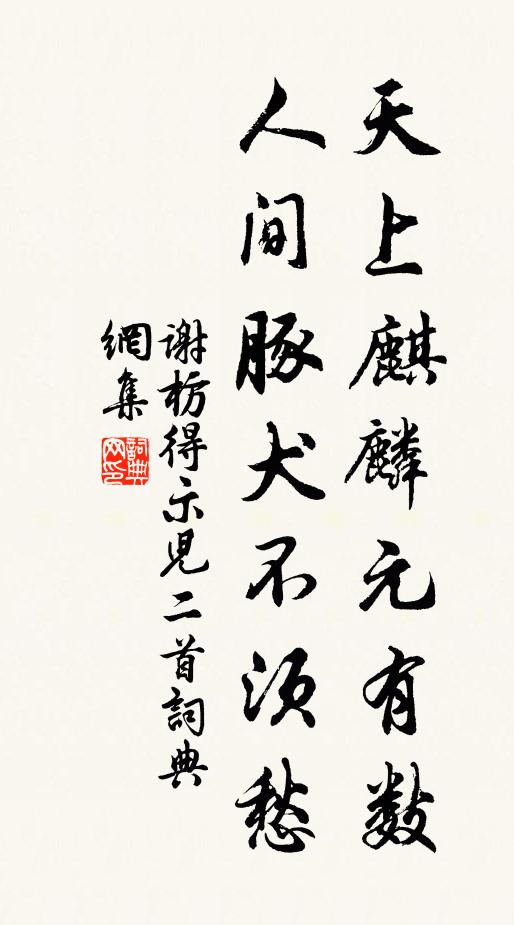 天上麒麟元有数
人间豚犬不须愁
谢枋得示児二首詞典
網集
詞典网印